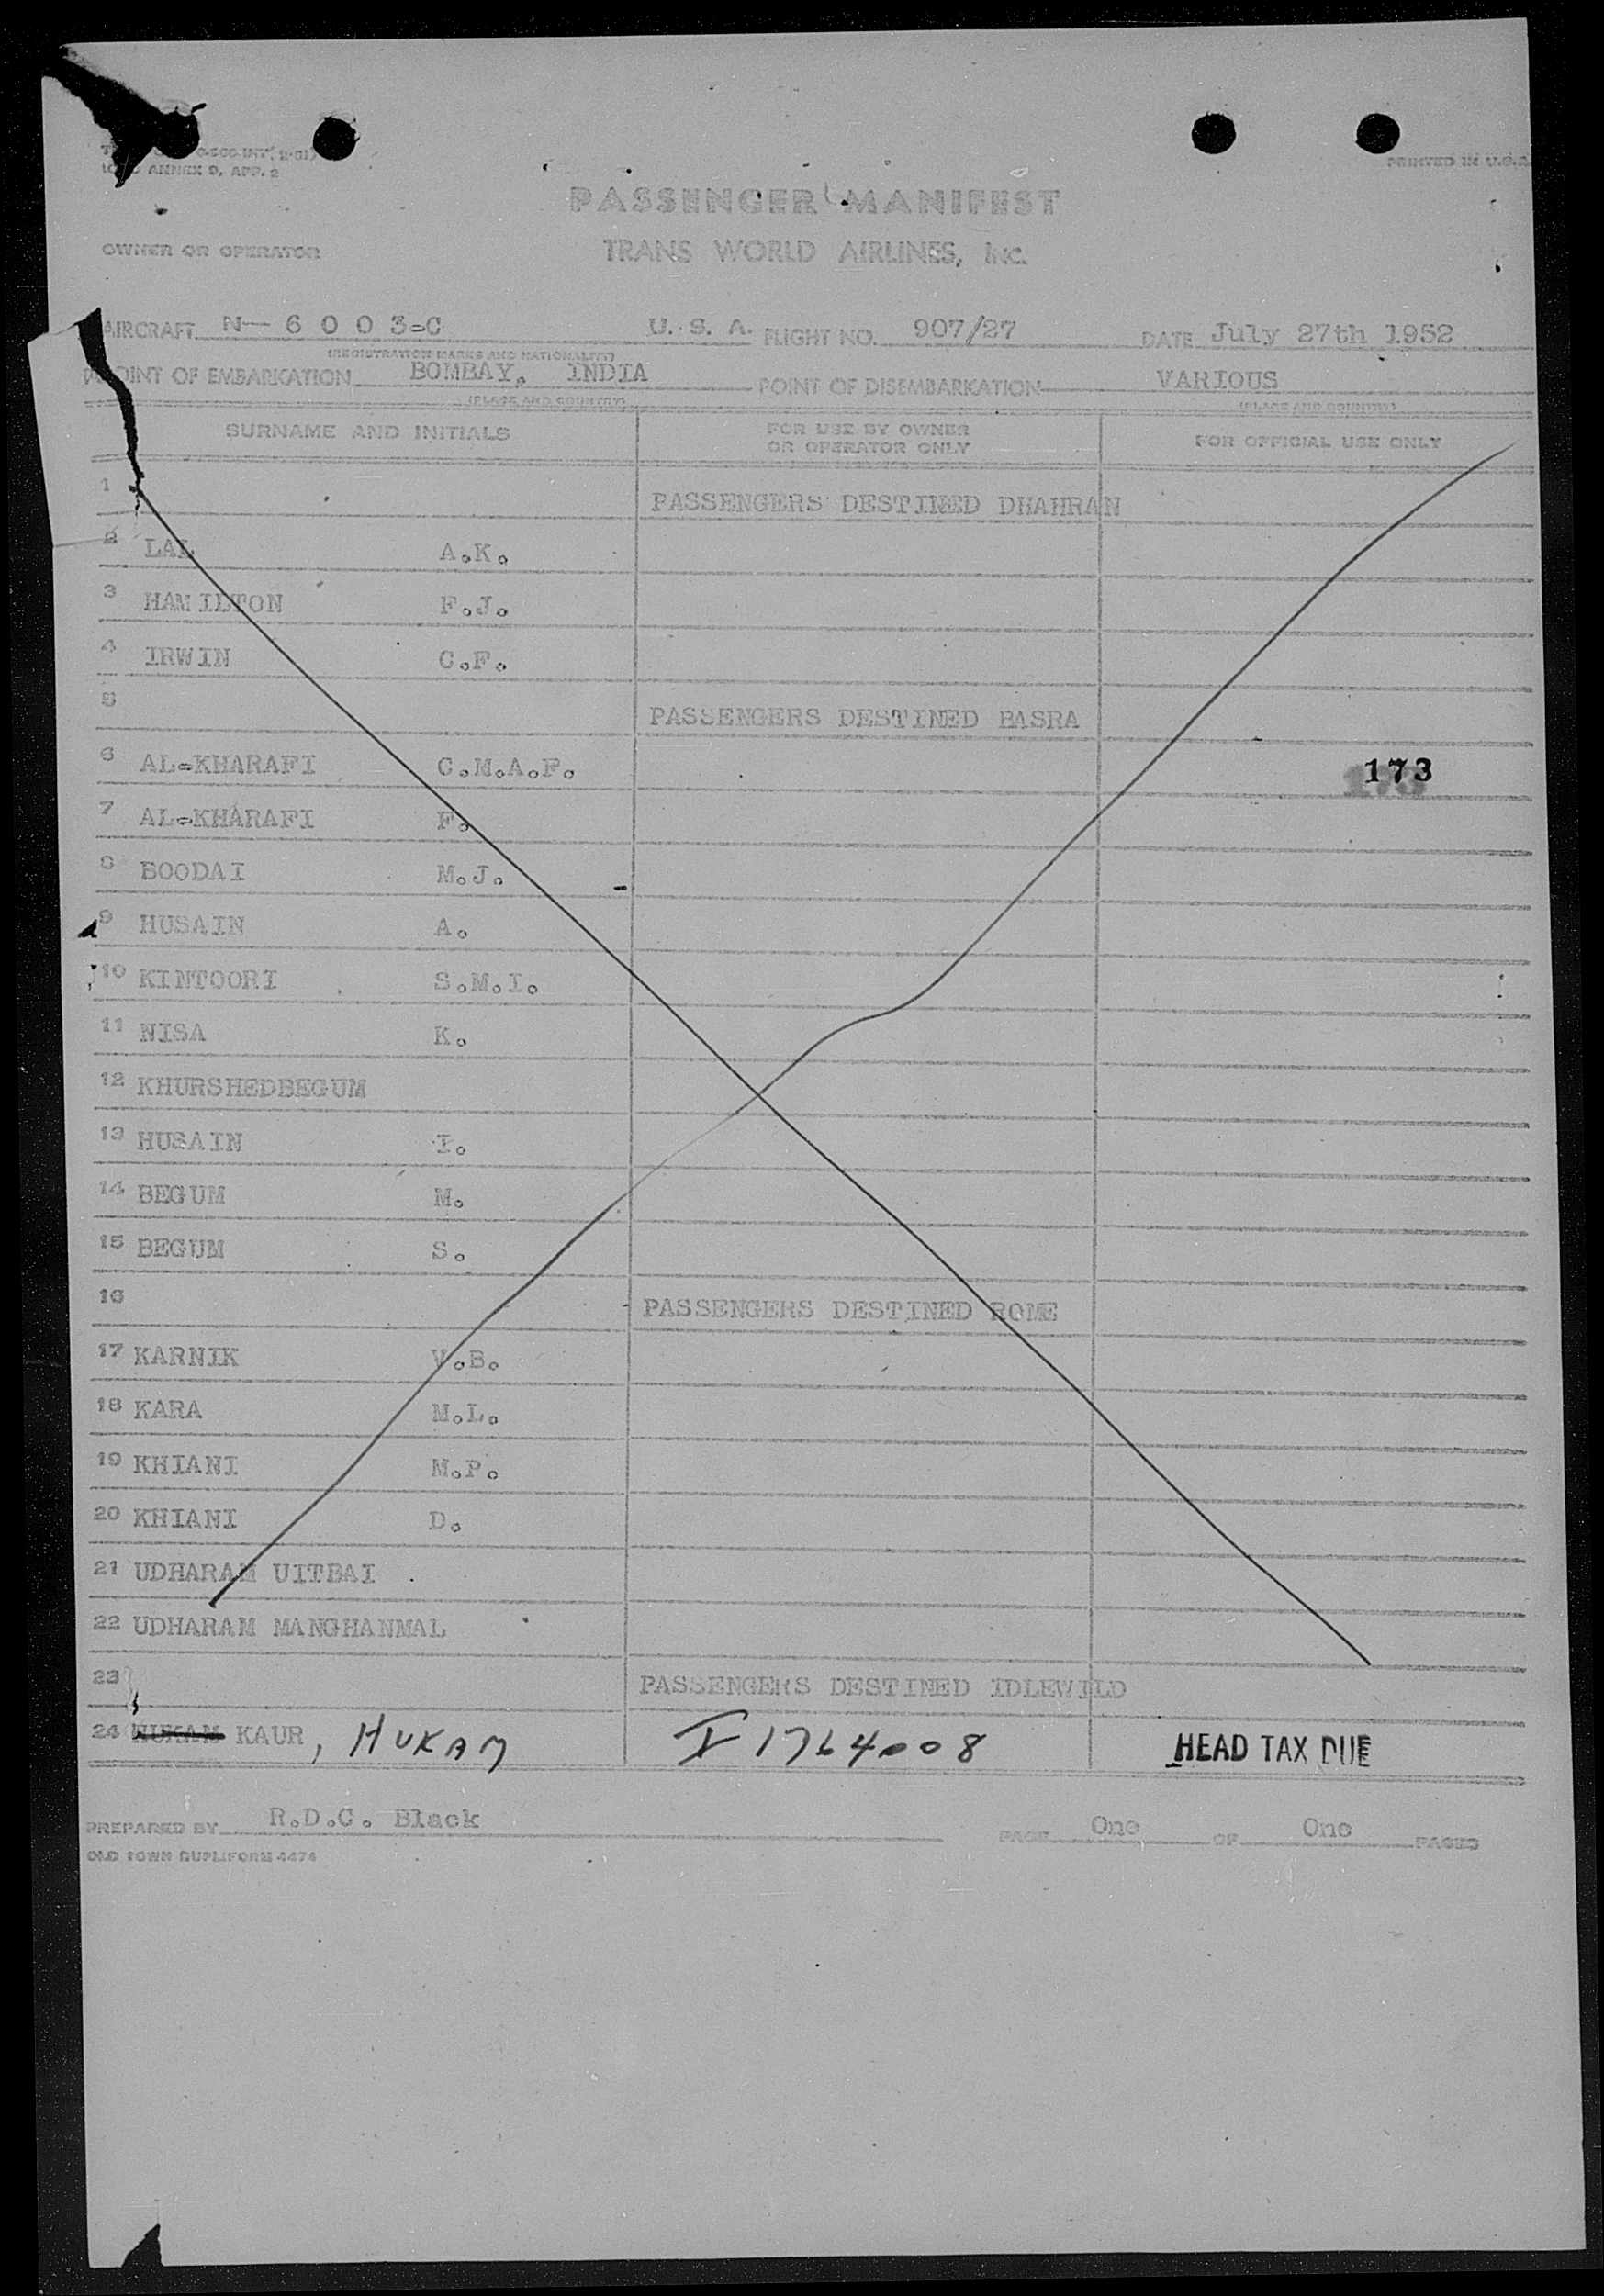 ANNEX 9, APP. 2
PRINTED IN U.S.A.
PASSENGER MANIFEST
OWNER OR OPERATOR TRANS WORLD AIRLINES, INC.
AIRCRAFT N- 6 0 0 3-C U. S. A. FLIGHT NO. 907/27 DATE July 27th 1952
(REGISTRATION MARKS AND NATIONALITY)
POINT OF EMBARKATION BOMBAY, INDIA POINT OF DISEMBARKATION VARIOUS
(PLACE AND COUNTRY) (PLACE AND COUNTRY)
SURNAME AND INITIALS FOR USE BY OWNER OR OPERATOR ONLY FOR OFFICIAL USE ONLY
1 PASSENGERS DESTINED DHAHRAN
2 LAL A.K.
3 HAMILTON F.J.
4 IRWIN C.F.
5 PASSENGERS DESTINED BASRA
6 AL-KHARAFI C.M.A.F. 173
7 AL-KHARAFI F.
8 BOODAI M.J.
9 HUSAIN A.
10 KINTOORI S.M.I.
11 NISA K.
12 KHURSHEDBEGUM
13 HUSAIN I.
14 BEGUM M.
15 BEGUM S.
16 PASSENGERS DESTINED ROME
17 KARNIK V.B.
18 KARA M.L.
19 KHIANI M.P.
20 KHIANI D.
21 UDHARAM UITBAI
22 UDHARAM MANGHANMAL
23 PASSENGERS DESTINED IDLEWILD
24 HUKAM KAUR, HUKAM I 1764008 HEAD TAX DUE
PREPARED BY R.D.C. Black PAGE One OF One PAGES
OLD TOWN DUPLIFORM 4474